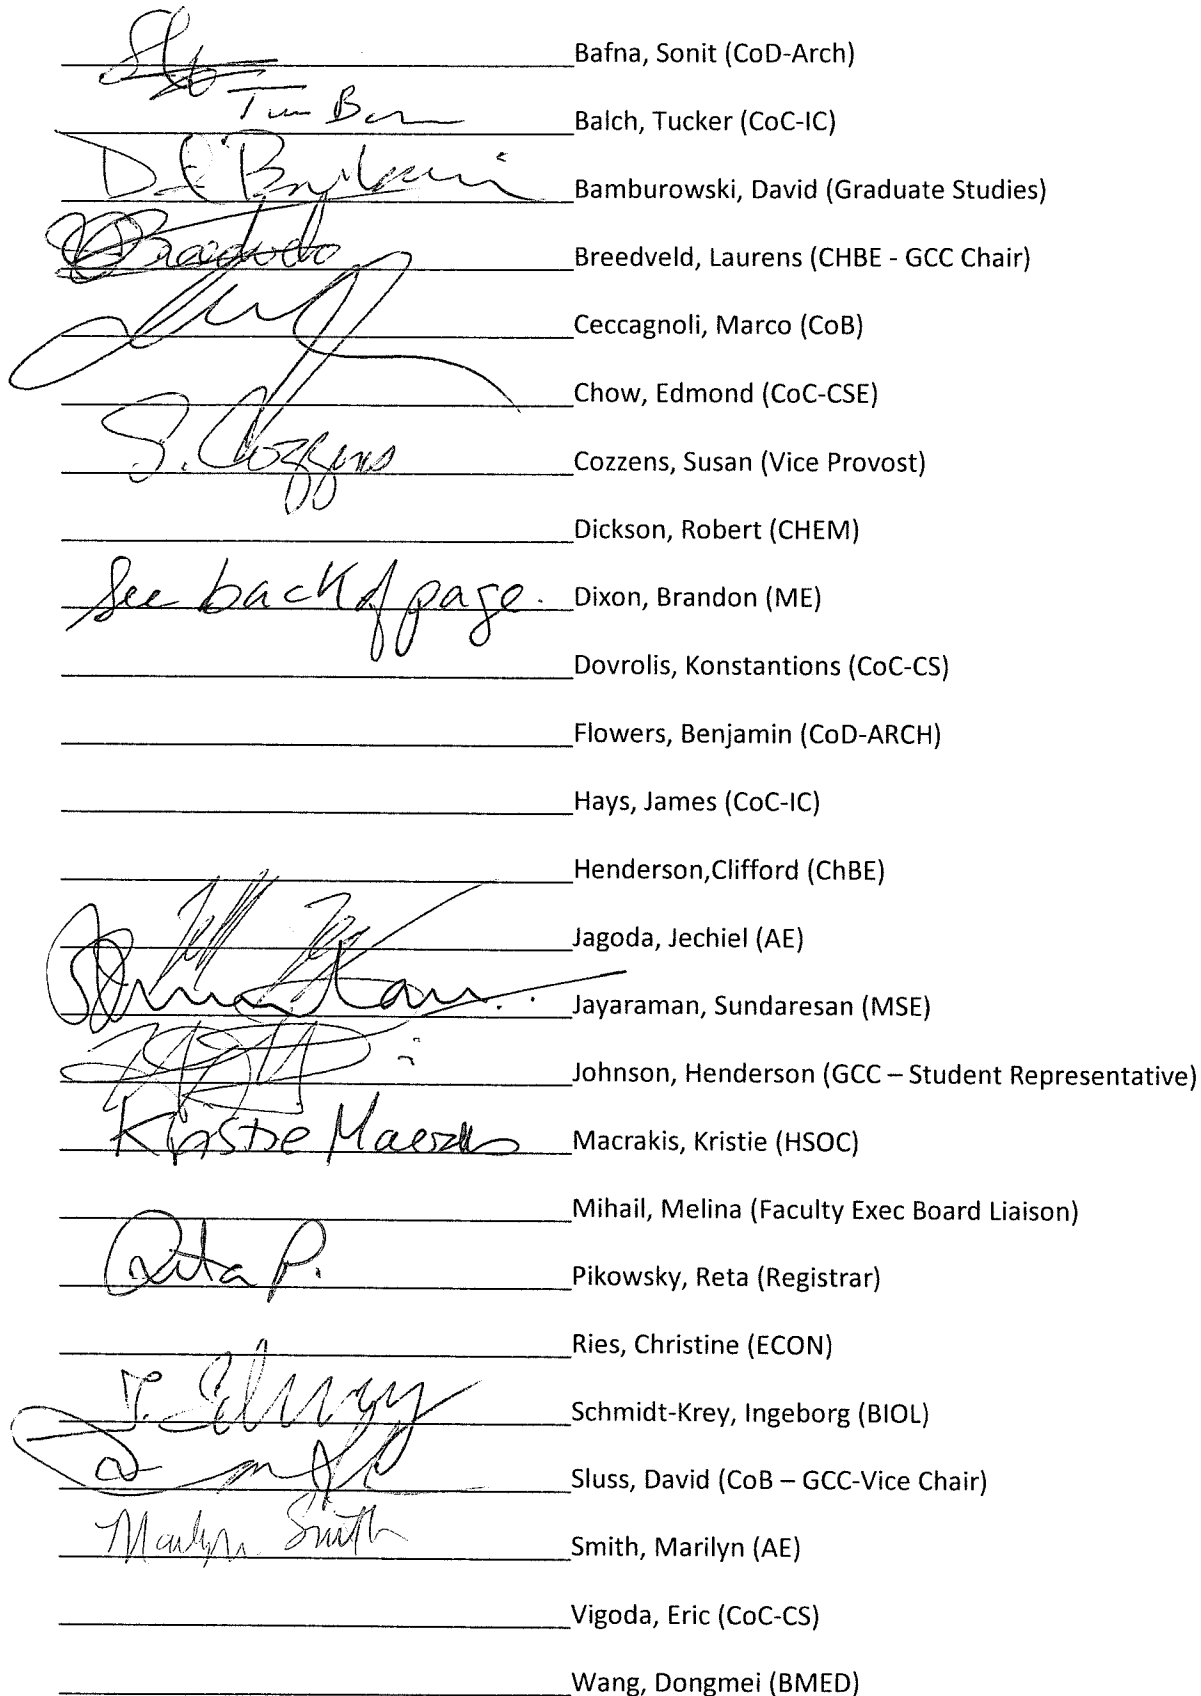 Bafna, Sonit (CoD-Arch)
Balch, Tucker (CoC-IC)
Bamburowski, David (Graduate Studies)
Breedveld, Laurens (CHBE - GCC Chair)
Ceccagnoli, Marco (CoB)
Chow, Edmond (CoC-CSE)
S. Cozzens Cozzens, Susan (Vice Provost)
Dickson, Robert (CHEM)
See back of page. Dixon, Brandon (ME)
Dovrolis, Konstantions (CoC-CS)
Flowers, Benjamin (CoD-ARCH)
Hays, James (CoC-IC)
Henderson,Clifford (ChBE)
Jagoda, Jechiel (AE)
Jayaraman, Sundaresan (MSE)
Johnson, Henderson (GCC – Student Representative)
Kristie Macrakis Macrakis, Kristie (HSOC)
Mihail, Melina (Faculty Exec Board Liaison)
P. Pikowsky, Reta (Registrar)
Ries, Christine (ECON)
Schmidt-Krey, Ingeborg (BIOL)
Sluss, David (CoB – GCC-Vice Chair)
Marilyn Smith Smith, Marilyn (AE)
Vigoda, Eric (CoC-CS)
Wang, Dongmei (BMED)